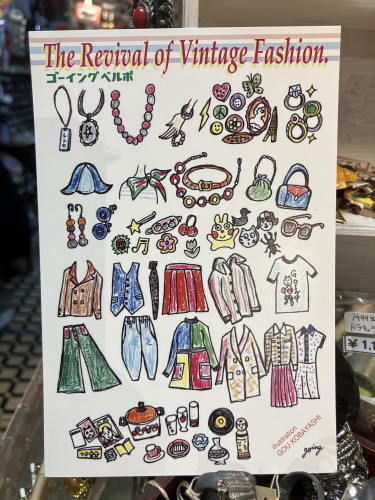 The Revival of Vintage Fashion.
ゴーイングベルボ
illustration
GOU KOBAYASHI
going